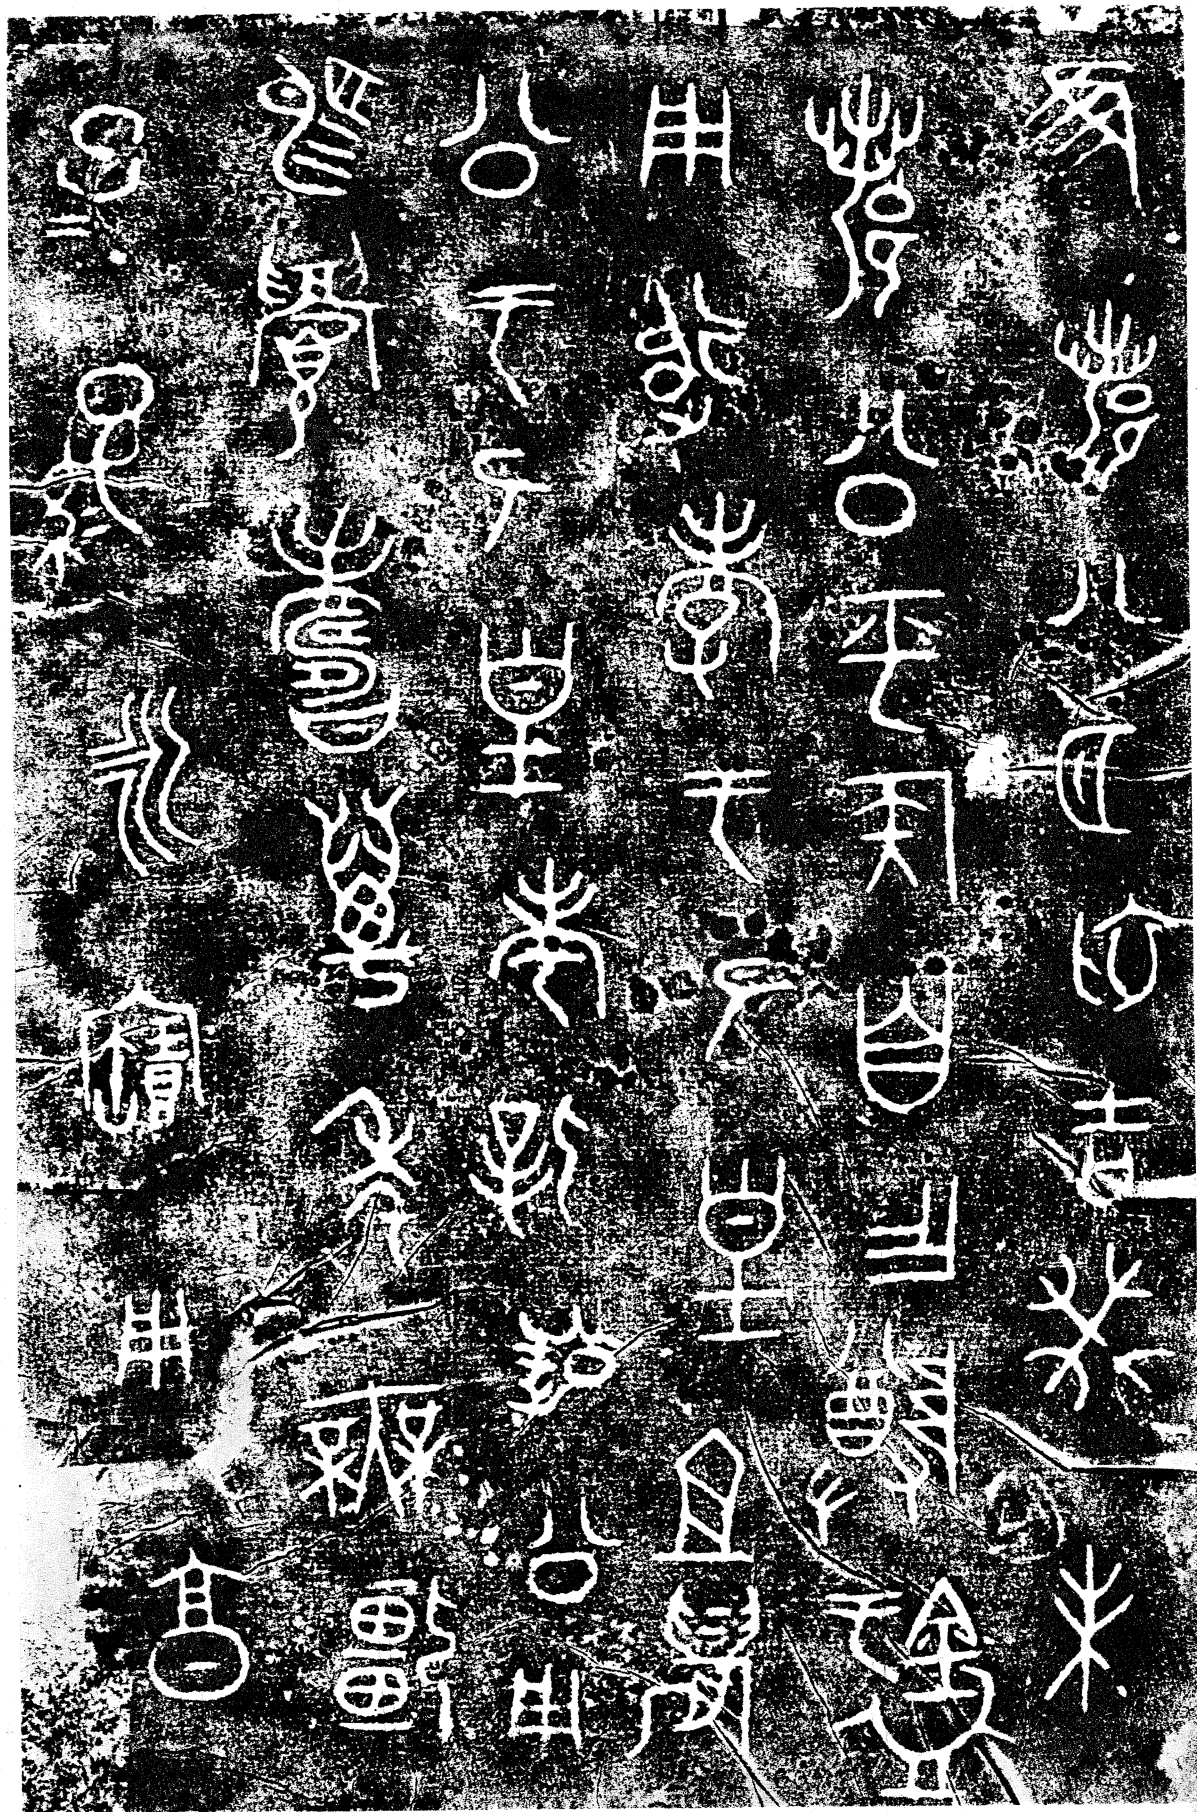 隹鄀八月初吉癸未
鄀公平侯自乍尊錳
用追孝于厥皇且晨
公于厥皇考屖公用
賜眉壽萬年無彊
子=孫=永寶用享